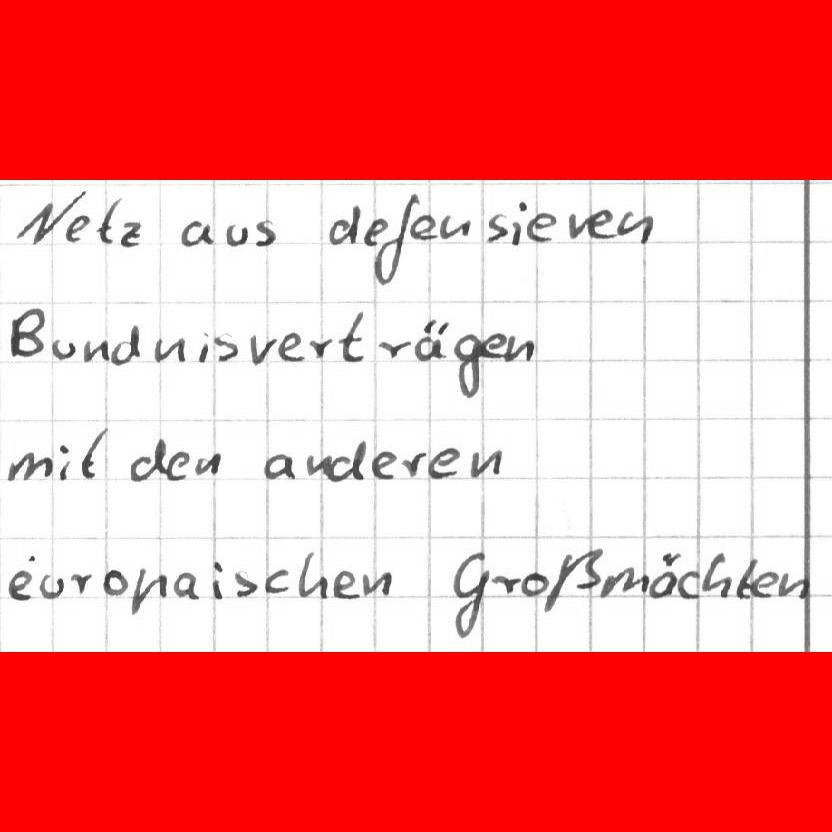 Netz aus defensieven
Bundnisverträgen
mit den anderen
europaischen Großmächten